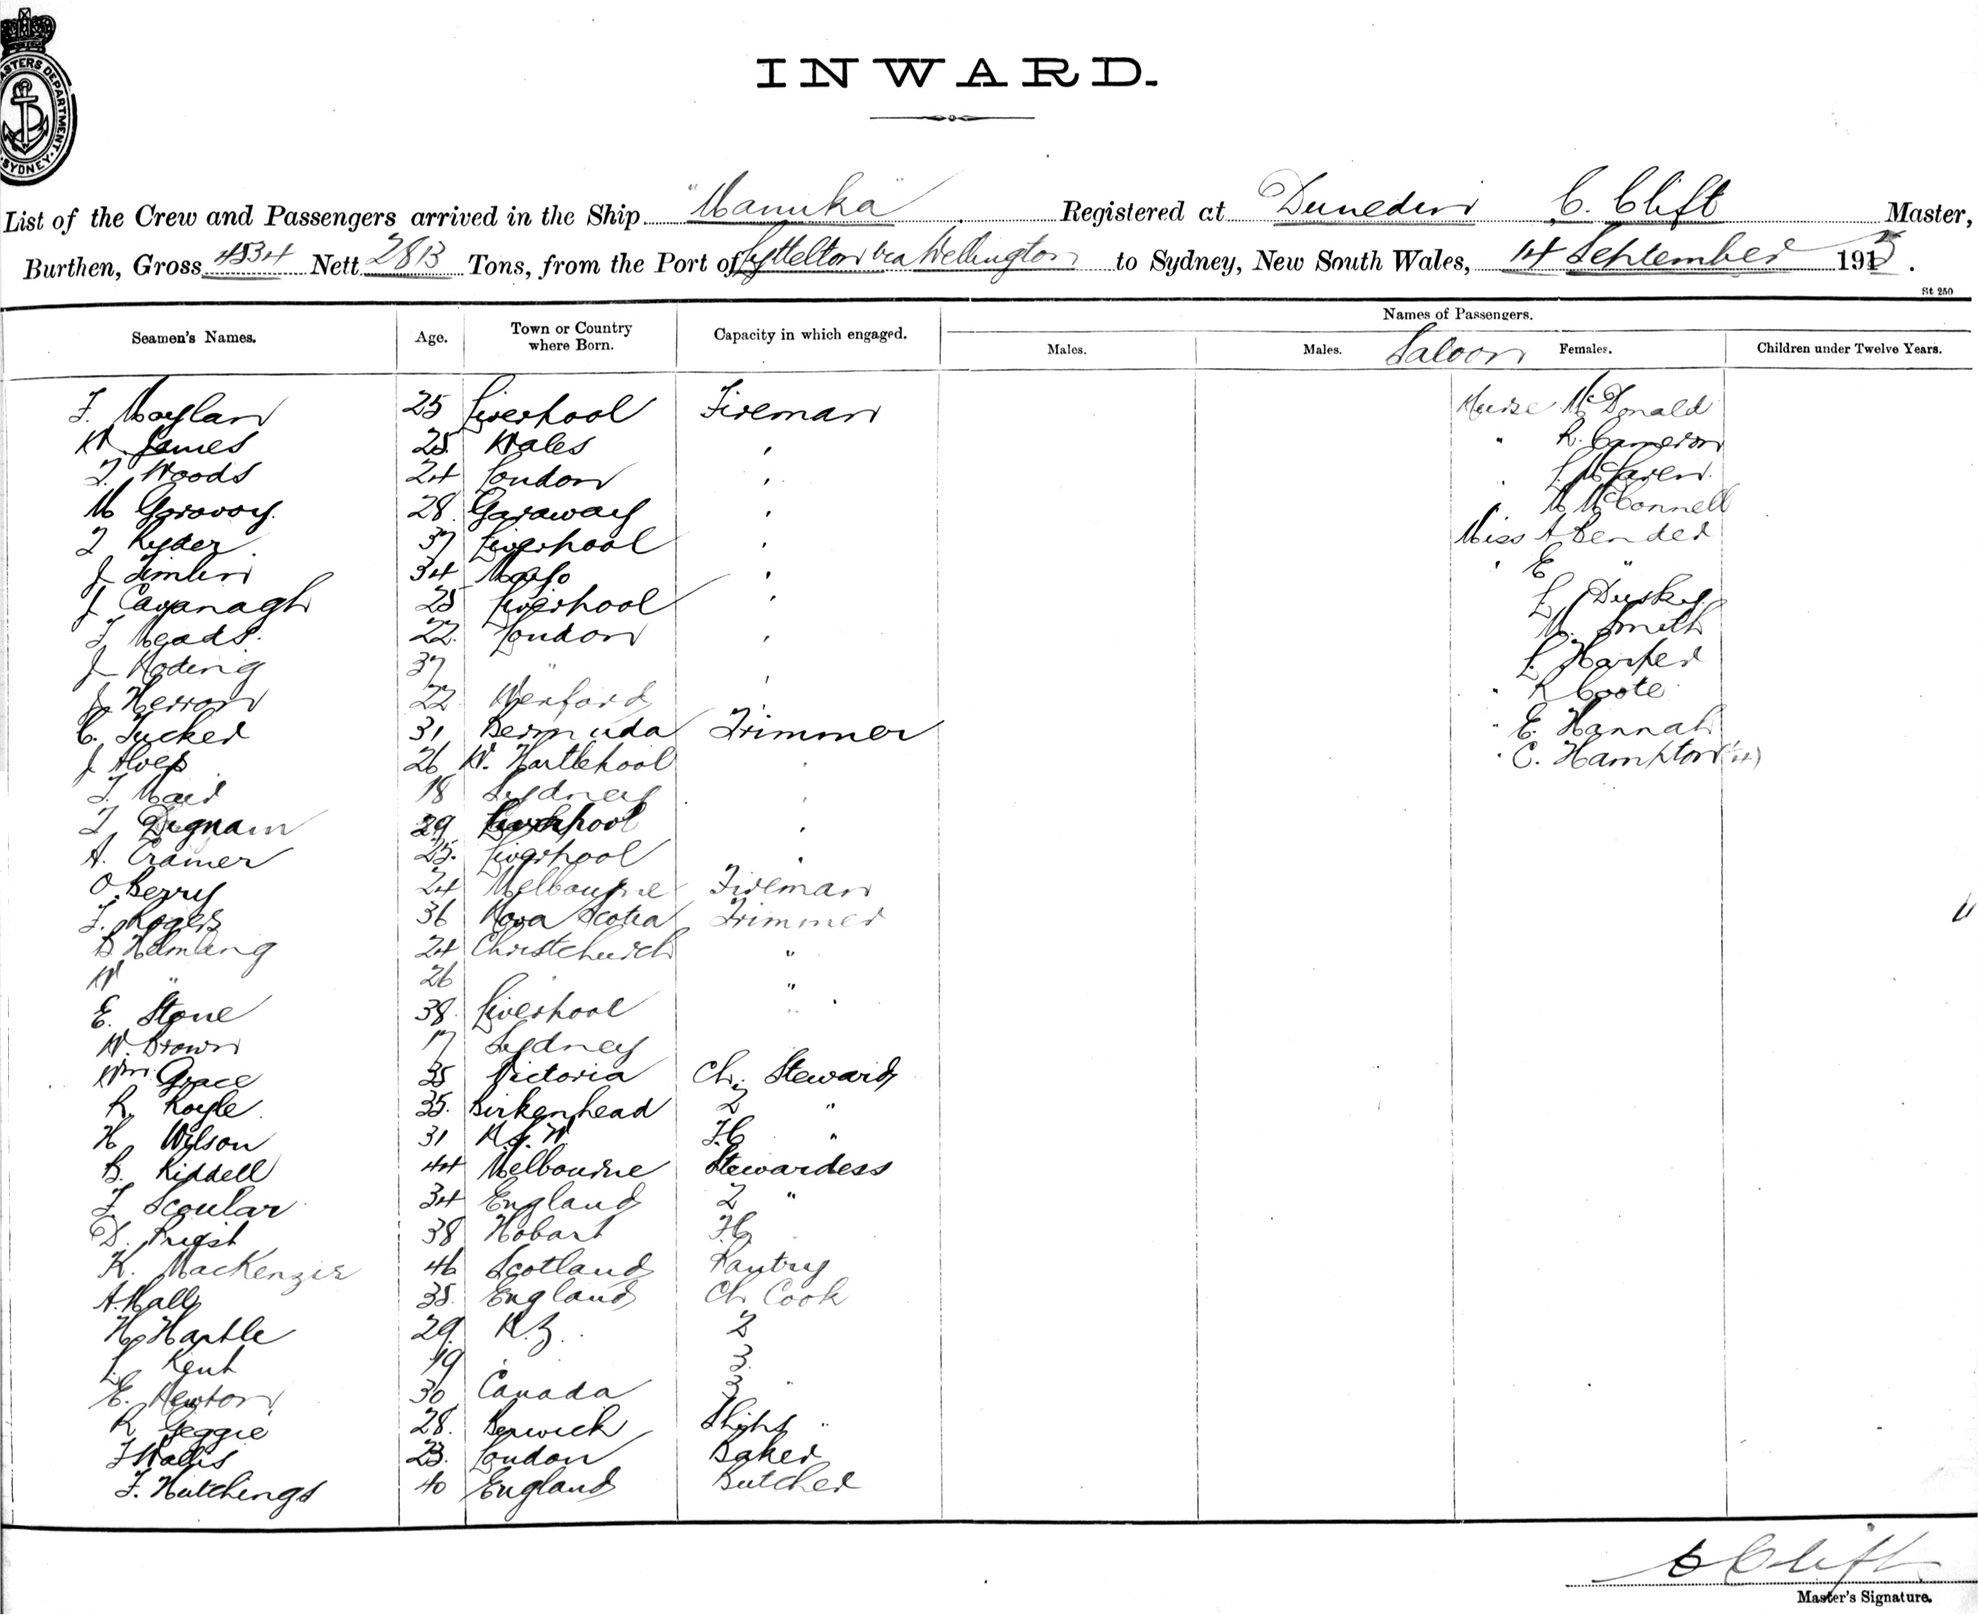 MASTERS DEPARTMENT. SYDNEY
INWARD.
List of the Crew and Passengers arrived in the Ship "Manuka" Registered at Dunedin C. Clift Master,
Burthen, Gross 4534 Nett 2813 Tons, from the Port of Lyttelton via Wellington to Sydney, New South Wales, 14 September 1915.
St 250
Seamen's Names. Age. Town or Country where Born. Capacity in which engaged. Names of Passengers.
Males. Males. Saloon Females. Children under Twelve Years.
F. Moylan 25 Liverpool Fireman Nurse McDonald
W. James 25 Wales " " R. Cameron
T. Woods 24 London " " L. McLaren
M 28 " " M McConnell
T Ryder 37 Liverpool " Miss A Bender
J Timlin 34 Mayo " " E "
J Cavanagh 25 Liverpool " L Duskey
T Meads 22 London " M. Smith
J 37 " " L. Harper
J Herron 22 Wexford " " R Coote
C. Tucker 31 Bermuda Trimmer " E. Hannah
J 26 W. Hartlepool " " C. Hampton
T. 18 Sydney "
T Dignam 29 Liverpool "
A. Cramer 25. Liverpool "
O. Berry 24 Melbourne Fireman
F. Rogers 36 Nova Scotia Trimmer
24 Christchurch "
W " 26 "
E. Stone 38 Liverpool "
W. Brown 17 Sydney
Wm Grace 35 Victoria Ch. Steward
R. Royle 35. Birkenhead 2 "
H. Wilson 31 N.S.W. F.C. "
B. Riddell 44 Melbourne Stewardess
F. Scoular 34 England 2 "
D. Priest 38 Hobart F.C.
K. MacKenzie 46 Scotland Pantry
A. Hall 35 England Ch. Cook
H. Hartle 29. N.Z. 2
L. Kent 19 " 3.
E. Newton 30 Canada 3 "
R Geggie 28. Berwick Ships "
J Wallis 23. London Baker
F. Hutchings 40 England Butcher
C Clift
Master's Signature.